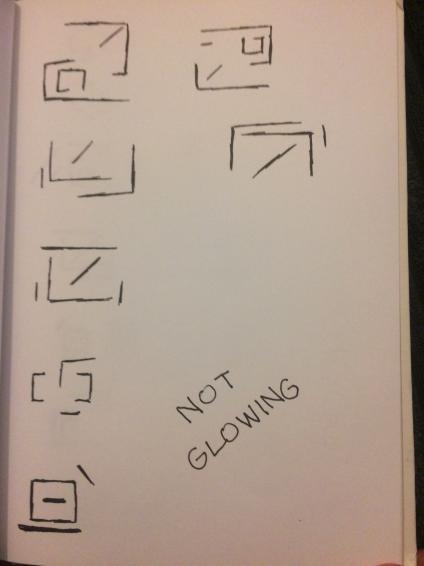 NOT
GLOWING